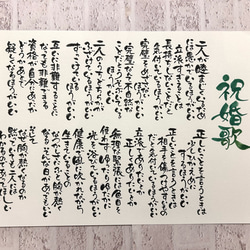 祝婚歌
二人が睦まじくいるためには
愚かでいるほうがいい
立派すぎないほうがいい
立派すぎることは
長持ちしないことだと
気付いているほうがいい
完璧をめざさないほうがいい
完璧なんて不自然な
ことだと
うそぶいているほうがいい
二人のうちどちらかが
ふざけているほうがいい
ずっこけているほうがいい
互いに非難することが
あっても
非難できる
資格が自分にあったか
どうか
あとで
疑わしくなるほうがいい
正しいことを言うときは
少しひかえめに
するほうがいい
正しいことを言うときは
相手を傷つけやすい
ものだと
気付いているほうがいい
立派でありたいとか
正しくありたいとかいう
無理な緊張には
色目を使わず
ゆったり ゆたかに
光を浴びているほうがいい
健康で 風に吹かれながら
生きていることの
なつかしさに
ふと 胸が熱くなる
そんな日があってもいい
そして
なぜ胸が熱くなるのか
黙っていても
二人には
わかるのであってほしい